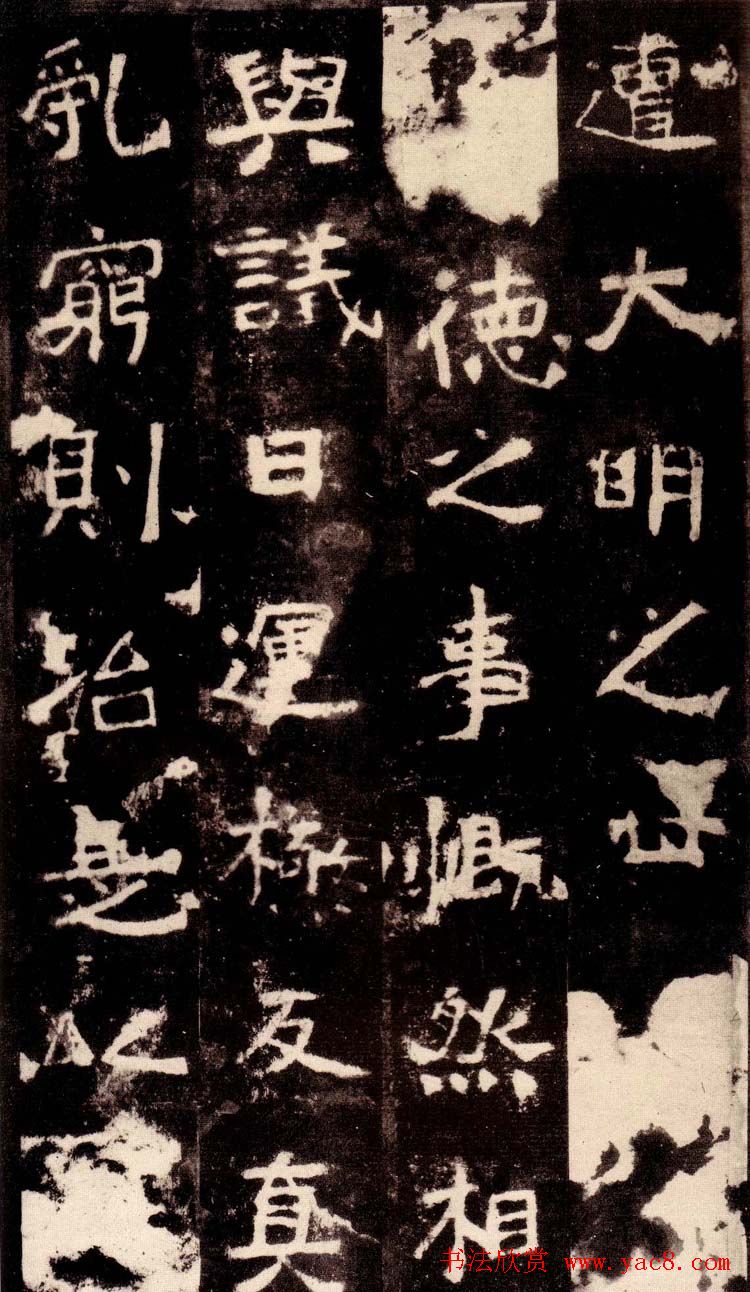 遭大明之
德之事慨然相
與議曰運極反真
亂窮則治是以
书法欣赏 www.yac8.com